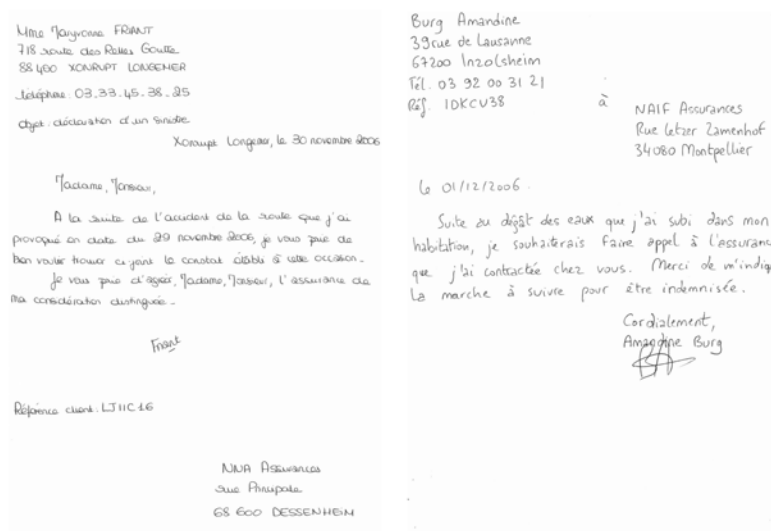 Mme Maryvonne FRIANT
718 route des Relles Goutte
88400 XONRUPT LONGEMER
téléphone: 03.33.45.38.25
objet: déclaration d'un sinistre
Xonrupt Longemer, le 30 novembre 2006
Madame, Monsieur,
A la suite de l'accident de la route que j'ai
provoqué en date du 29 novembre 2006, je vous prie de
bien vouloir trouver ci-joint le constat établi à cette occasion.
Je vous prie d'agréer, Madame, Monsieur, l'assurance de
ma considération distinguée.
Friant
Référence client: LJIIC16
NNA Assurances
rue Principale
68 600 DESSENHEIM
Burg Amandine
39 rue de Lausanne
67200 Inzolsheim
Tél. 03 92 00 31 21
Réf. IDKCV38
à
NAIF Assurances
Rue Letzer Zamenhof
34080 Montpellier
le 01/12/2006.
Suite au dégât des eaux que j'ai subi dans mon
habitation, je souhaiterais faire appel à l'assurance
que j'ai contractée chez vous. Merci de m'indiq
la marche à suivre pour être indemnisée.
Cordialement,
Amandine Burg